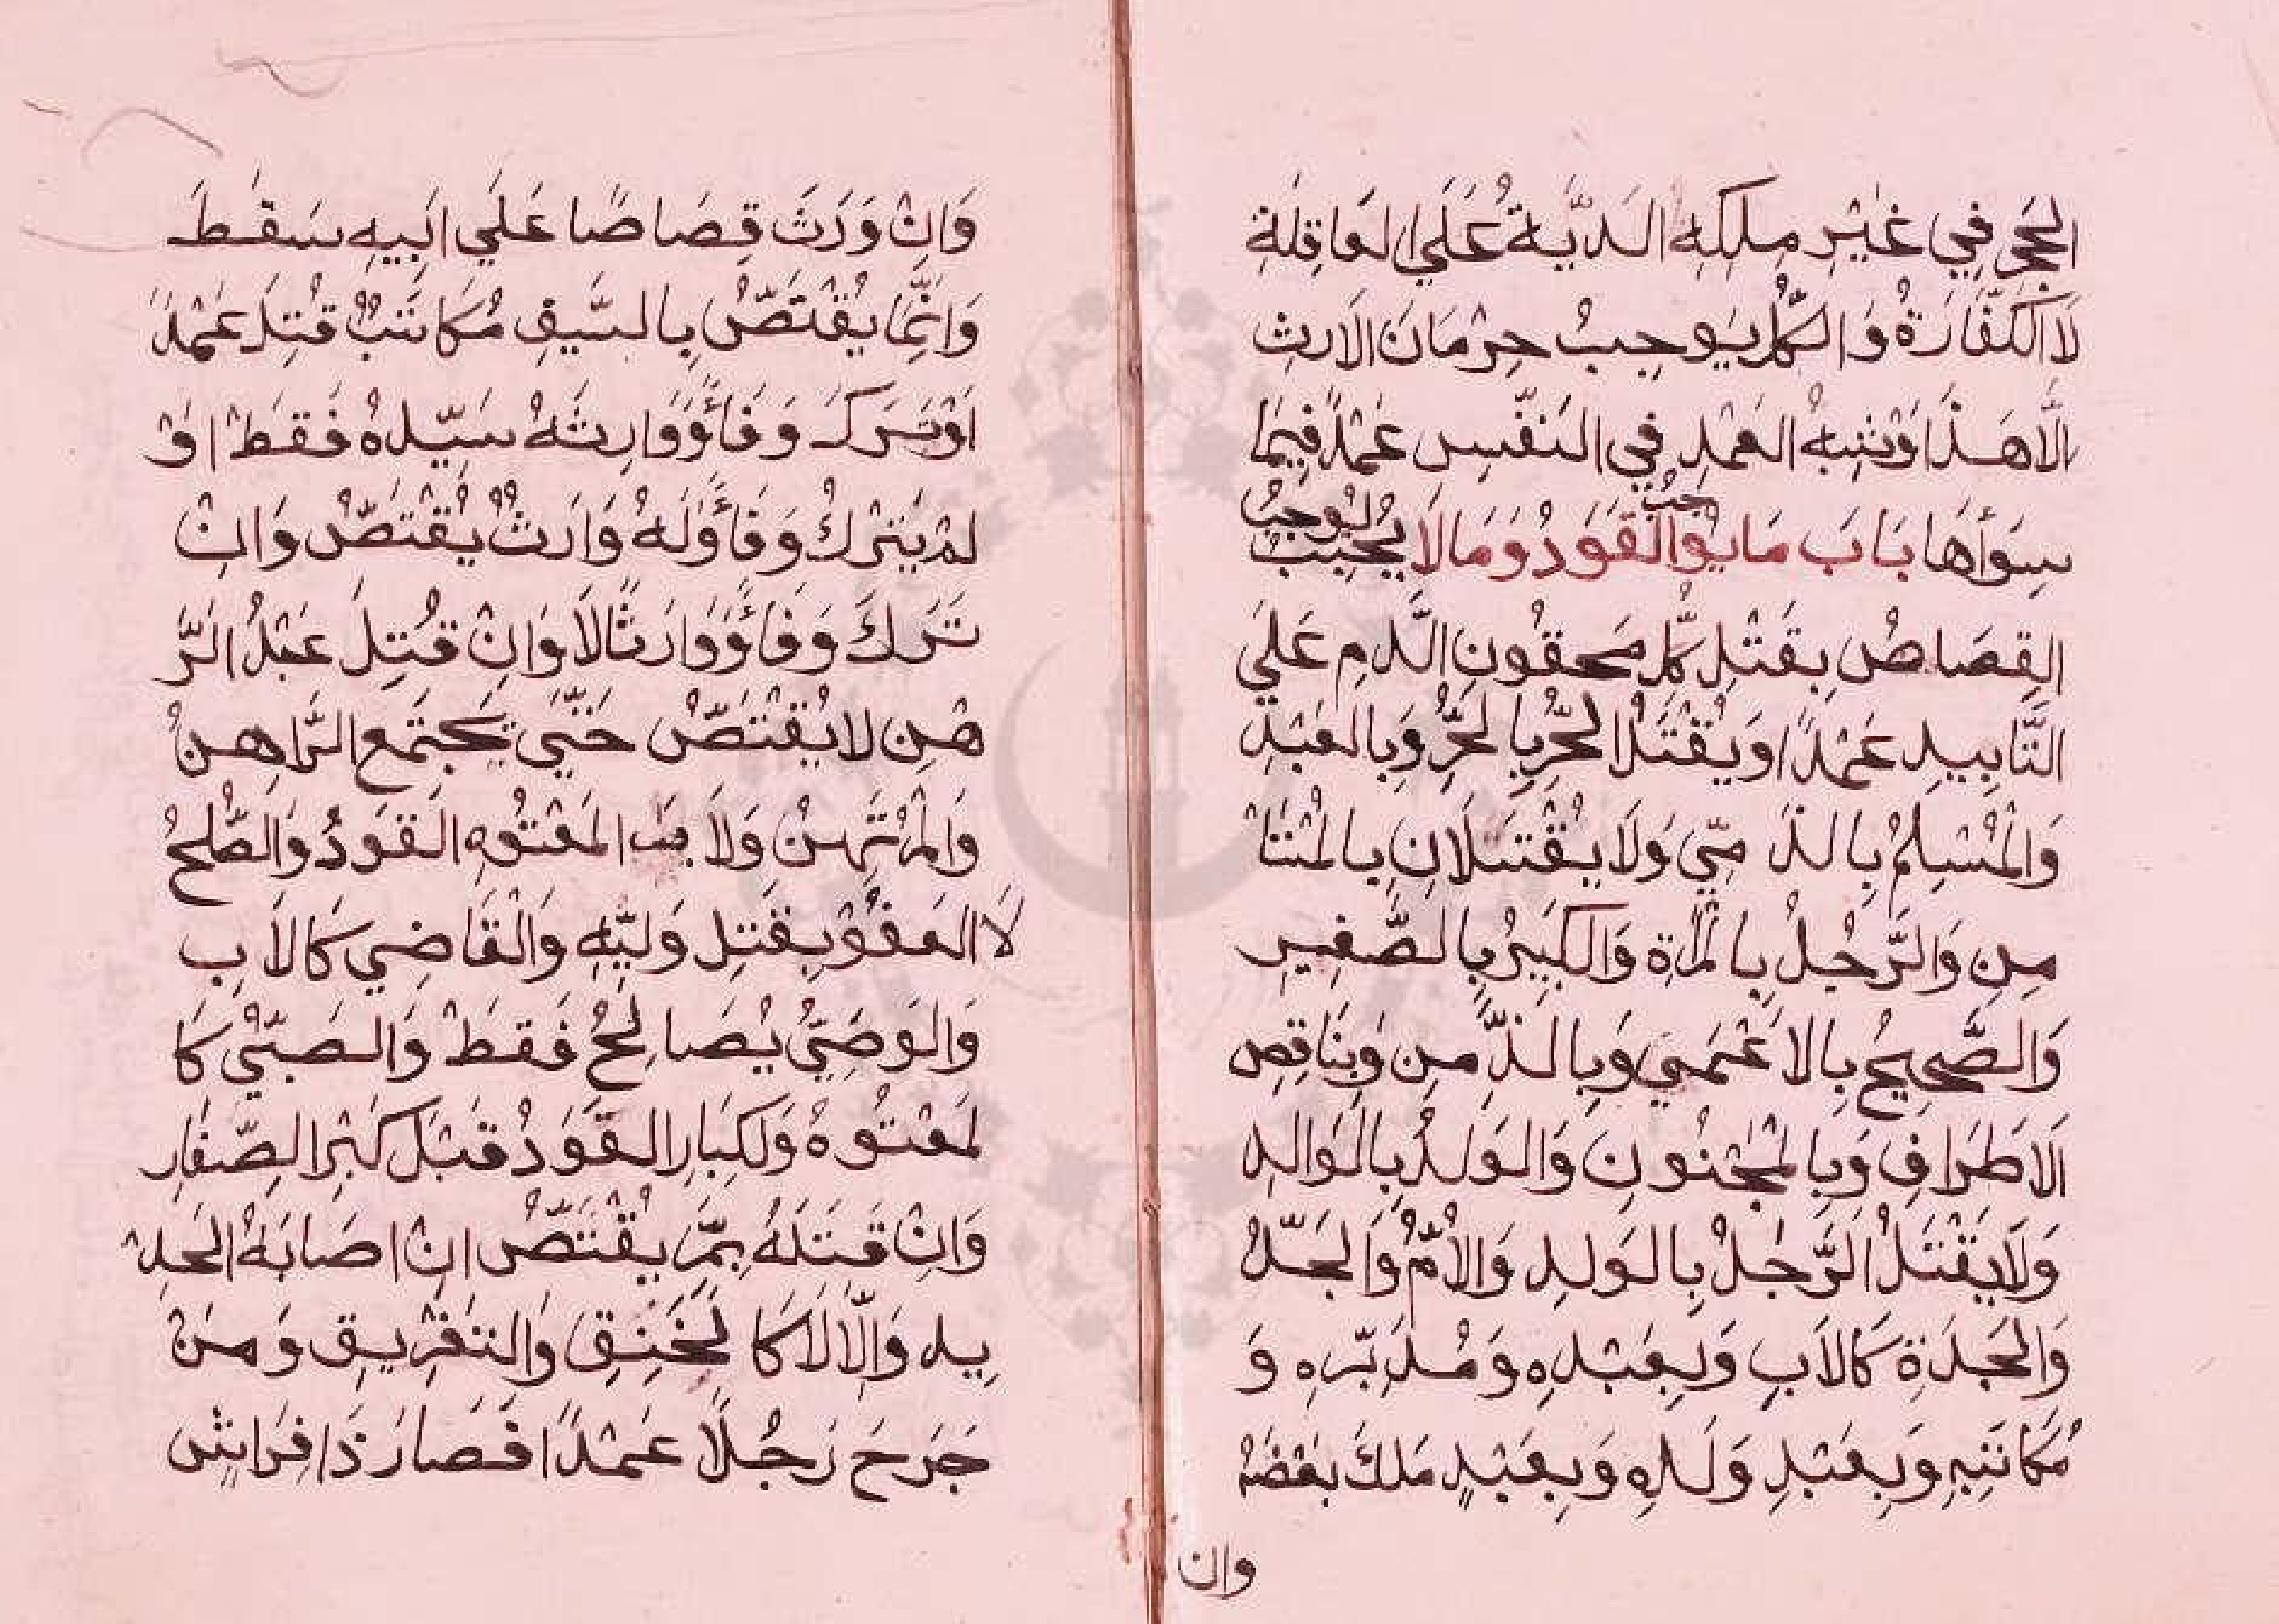 الحَجَرِ فِي غَيْرِ مِلكِهِ الدِّيَةُ عَلَي العَاقِلَةِ
لَا الكَفَّارَةُ وَالكُلُّ يُوجِبُ حِرْمَانَ الاَرثِ
اِلَّا هَذَا وَشِبهُ العَمْدِ فِي النَفْسِ عَمْدٌ فِيمَا
سِوَاَهَا بَابَ مَا يُوجبُ القَوَدُ وَمَالَا يُوجِبُ يَجِبُ
القِصَاصُ بِقَتْلِ كُلِّ مَحقُونِ الَّدمِ عَلَي
التَّابِيدِ عَمْدًا وَيُقْتَلُ الحُرُّ بِالحُرِّ وَبِالعَبْدِ
وَالمُسْلِمُ بِالذ مِّي وَلَا يُقْتَلَانِ بِالمُسْتَا
مِنِ وَالرَّجُلُ بِالمَرْاَةِ وَالكَبِيرُ بِالصَّغِيرِ
وَالصَّحِيحُ بِالاَعْمَي وَبِالذَّمِنِ وَبِنَاقِصِ
الاَطرَافِ وَبِالمَجْنُونِ وَالوَلَدُ بِالوَالِدِ
وَلَا يُقْتَلُ الرَّجُلُ بِالوَلدِ وَالاُمُّ وَالجَدُّ
وَالجَدَةِ كَالاَبِ وَبِعَبْدِهِ وَمُدَبَّرِهِ وَ
مُكَاتَبِهِ وَبِعَبْدِ وَلَدِهِ وَبِعَبْدٍ مَلَكَ بَعْضَهُ
وان
وَاِنْ وَرَثَ قِصَاصًا عَلَي اَبِيهِ سَقَطَ
وَاِنَّمَا يُقْتَصُّ بِالسَّيفِ مُكَاتَبٌ قُتِلَ عَمْدًا
اَوْ تَرَكَ وَفَاًء وَوَارِثُهُ سَيِّدهُ فَقَطْ اوْ
لمْ يَترُكْ وَفَاًء وَلَهُ وَارَثٌ يُقْتَصُّ وَاِنْ
تَرَكَ وَفَاًء وَوَارَثًا لَا وَاِنْ قُتِلَ عَبْدُ الرَّ
هْنِ لا يُقْتَصُّ حَتَّي يَجتَمع الرَّاهِنُ
وَالمُرْتَهِنُ وَلاَب المَعْتُوهِ القَوَدُ وَالصُّلحُ
لَا العَفْوُ بِقَتِل وَلِيِّهِ وَالْقَاضِي كَالاَبِ
وَالوَصِيُّ يُصَالِحُ فَقَطْ وَالصَبِّيْ كَا
لمَعْتُوهُ وَلِكِبَارِ القَوَدُ قَبْلَ كَبْرِ الصِّغَارِ
وَاِنْ قَتَلَهُ بِمَّرِ يُقْتَصُّ اِنْ اصَابَهُ الحَدِ
يِد وَاِلَّا لَا كَا لخَنِقِ وَالتغْرِيقِ وَمَنْ
جَرَحَ رَجُلًا عَمْدًا فَصَارَ ذَا فِرَاشٍ